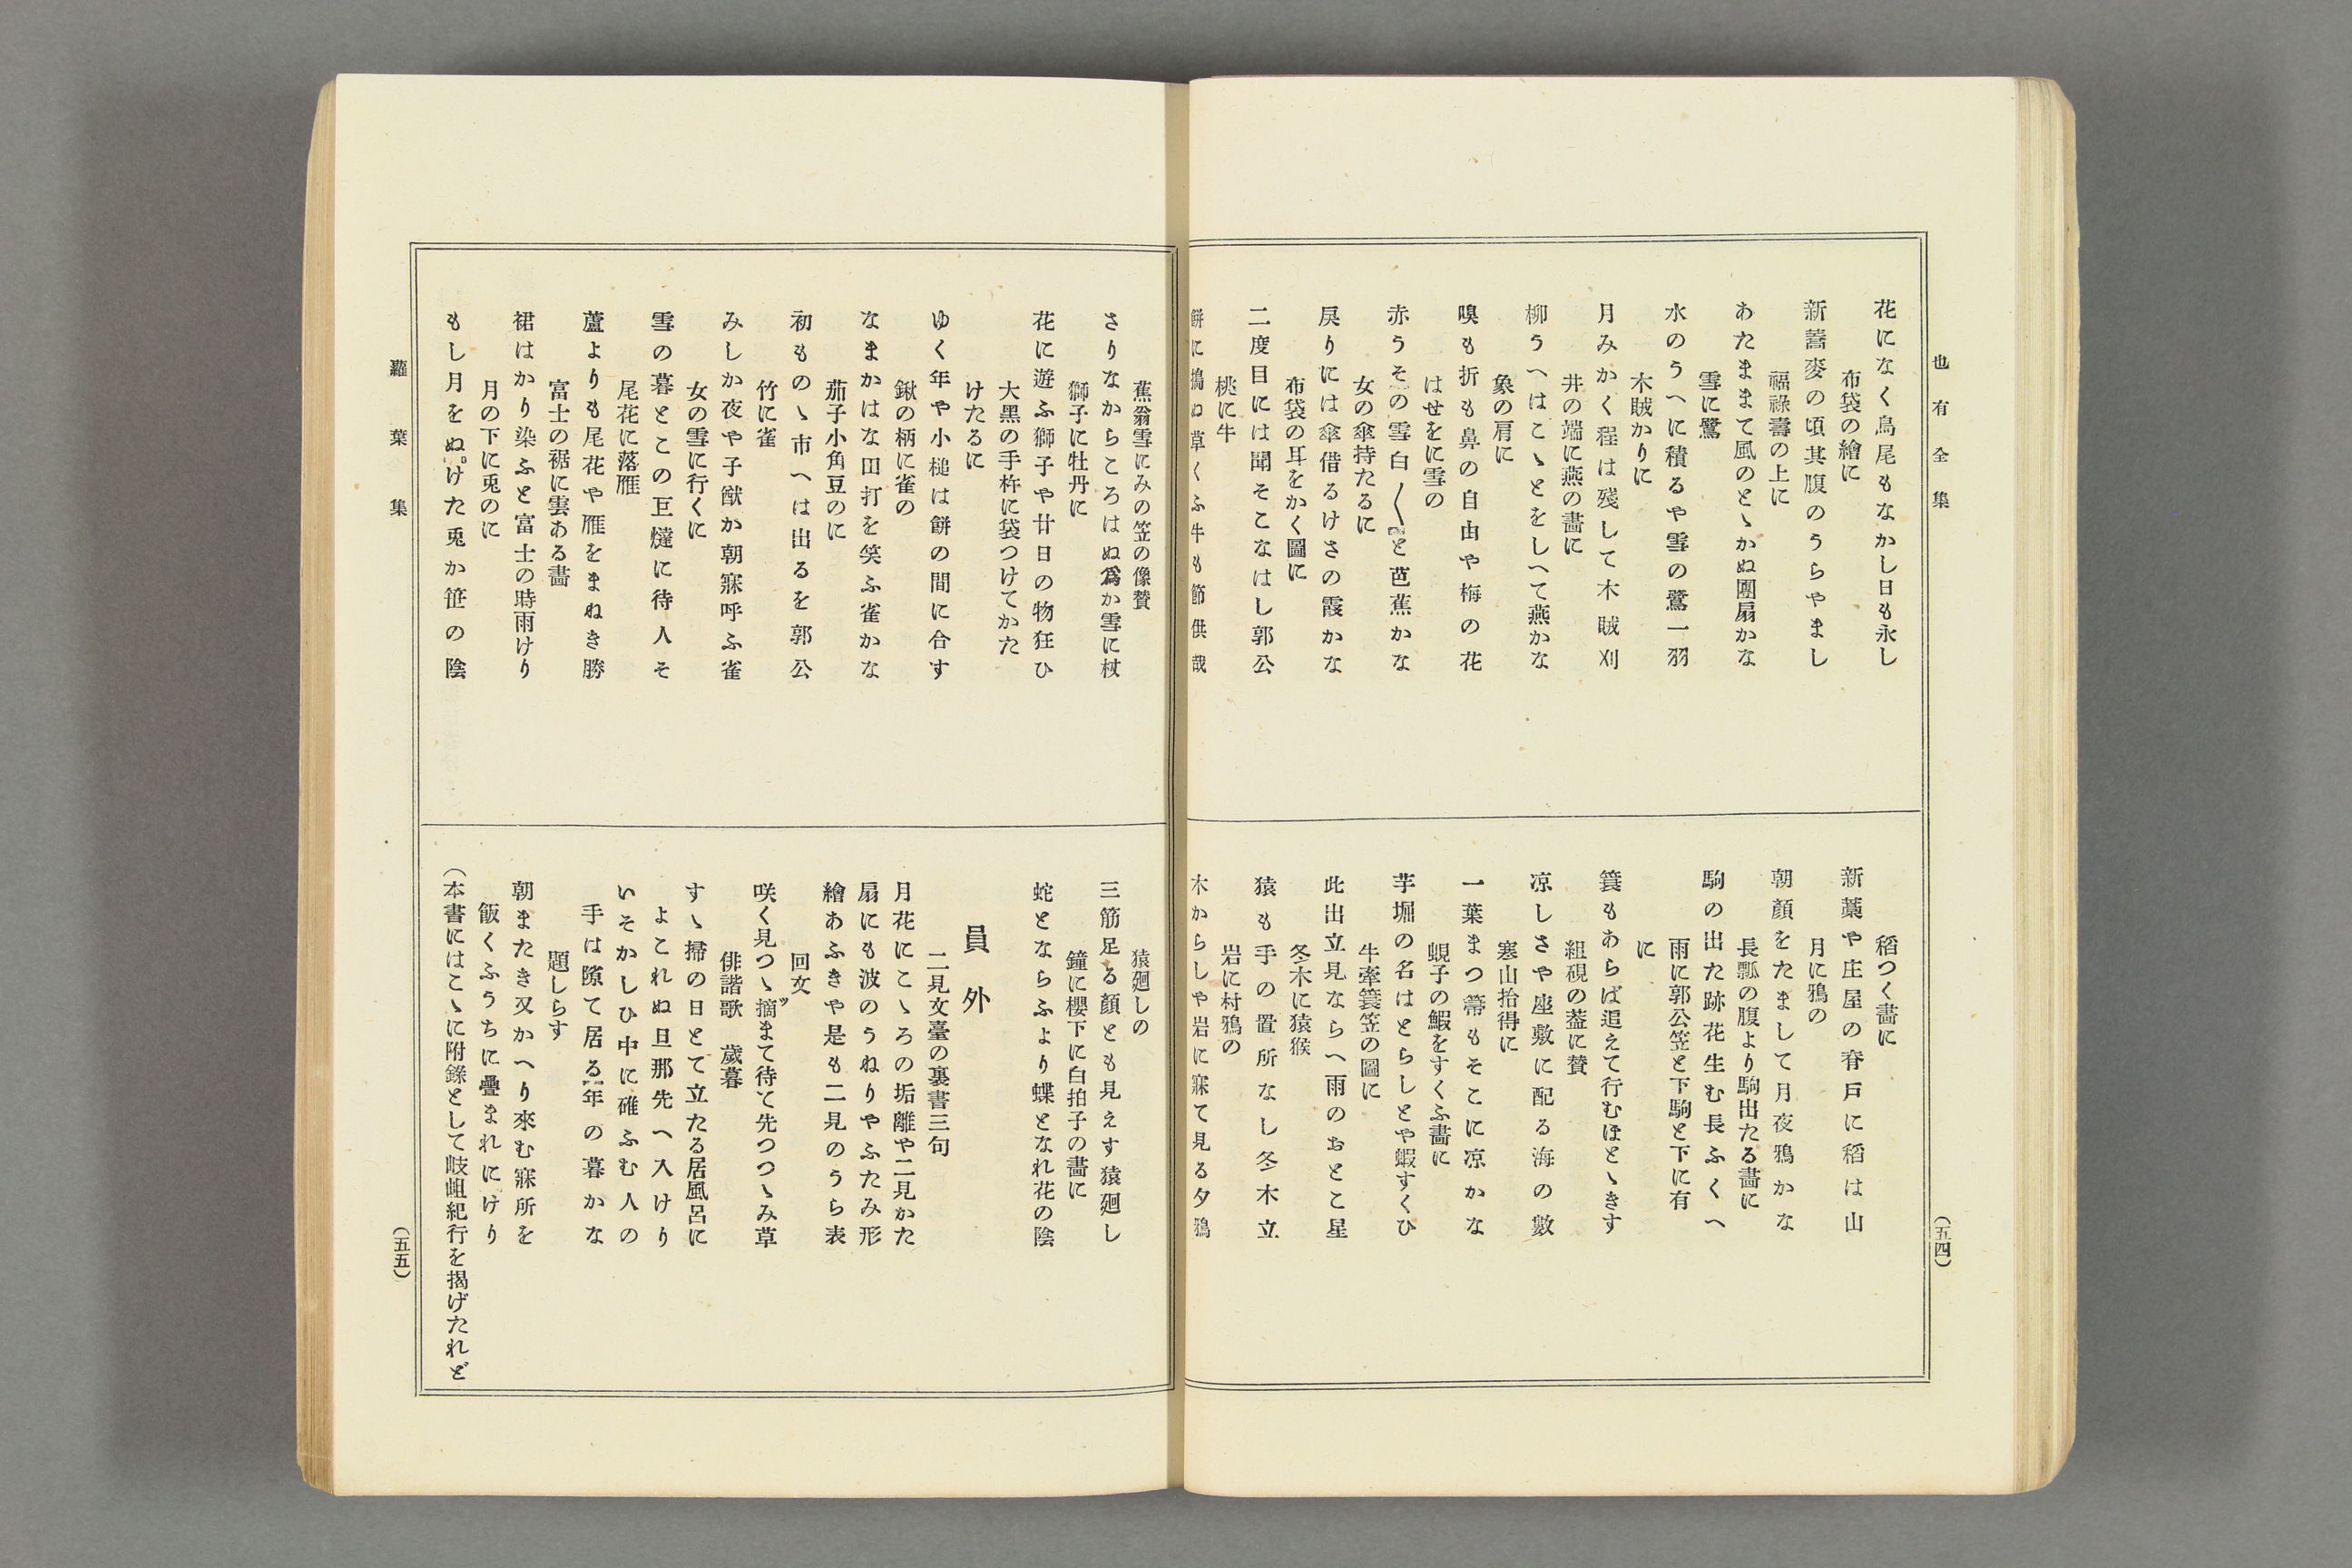 也有全集
花になく鳥尾もなかし日も永し
布袋の繪に
新蕎麥の頃其腹のうらやまし
福祿壽の上に
あたままて風のとゝかぬ團扇かな
雪に鷺
水のうへに積るや雪の鷺一羽
木賊かりに
月みかく程は殘して木賊刈
井の端に燕の畵に
柳うへはこゝとをしへて燕かな
象の肩に
嗅も折も鼻の自由や梅の花
はせをに雪の
赤うその雪白〱と芭蕉かな
女の傘持たるに
戾りには傘借るけさの霞かな
布袋の耳をかく圖に
二度目には聞そこなはし郭公
桃に牛
餅に搗ぬ草くふ牛も節供哉
稻つく畵に
新藁や庄屋の脊戶に稻は山
月に鴉の
朝顏をたまして月夜鴉かな
長瓢の腹より駒出たる畵に
駒の出た跡花生む長ふくへ
雨に郭公笠と下駒と下に有
に
簑もあらば追えて行むほとゝきす
組硯の葢に賛
凉しさや座敷に配る海の數
寒山拾得に
一葉まつ箒もそこに凉かな
蜆子の鰕をすくふ畵に
芋堀の名はとらしとや蝦すくひ
牛牽簑笠の圖に
此出立見ならへ雨のおとこ星
冬木に猿猴
猿も手の置所なし冬木立
岩に村鴉の
木からしや岩に寐て見る夕鴉
（五四）
蘿葉集
蕉翁雪にみの笠の像賛
さりなからころはぬ爲か雪に杖
獅子に牡丹に
花に遊ふ獅子や廿日の物狂ひ
大黑の手杵に袋つけてかた
けたるに
ゆく年や小槌は餅の間に合す
鍬の柄に雀の
なまかはな田打を笑ふ雀かな
茄子小角豆のに
初ものゝ市へは出るを郭公
竹に雀
みしか夜や子猷か朝寐呼ふ雀
女の雪に行くに
雪の暮とこの巨燵に待人そ
尾花に落雁
蘆よりも尾花や雁をまねき勝
富士の裾に雲ある畵
裙はかり染ふと富士の時雨けり
月の下に兎のに
もし月をぬけた兎か笹の陰
猿廻しの
三筋足る顏とも見えす猿廻し
鐘に櫻下に白拍子の畵に
蛇とならふより蝶となれ花の陰
員外
二見文臺の裏書三句
月花にこゝろの垢離や二見かた
扇にも波のうねりやふたみ形
繪あふきや是も二見のうら表
回文
咲く見つゝ摘ッまて待て先つつゝみ草
俳諧歌　歲暮
すゝ掃の日とて立たる居風呂に
よこれぬ旦那先へ入けり
いそかしひ中に碓ふむ人の
手は隙て居る年の暮かな
題しらす
朝またき又かへり來む寐所を
飯くふうちに疊まれにけり
（本書にはこゝに附錄として岐岨紀行を揭げたれど
（五五）